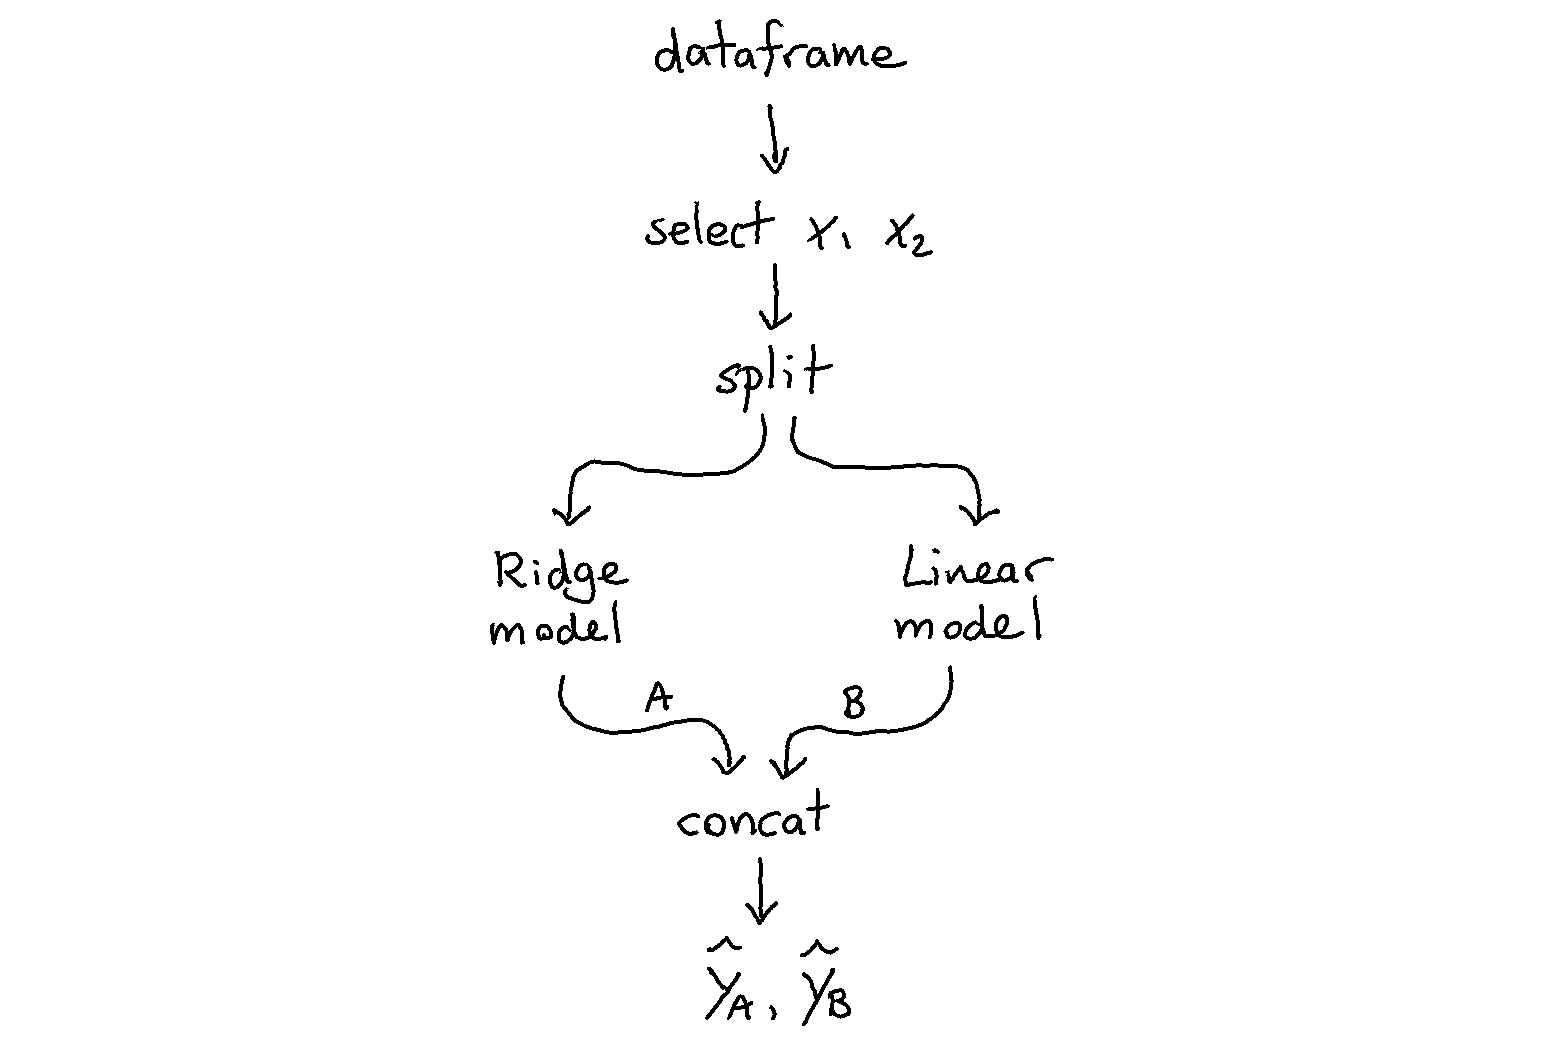 dataframe
select x₁ x₂
split
Ridge
model
Linear
model
A
B
concat
ŷ_A, ŷ_B